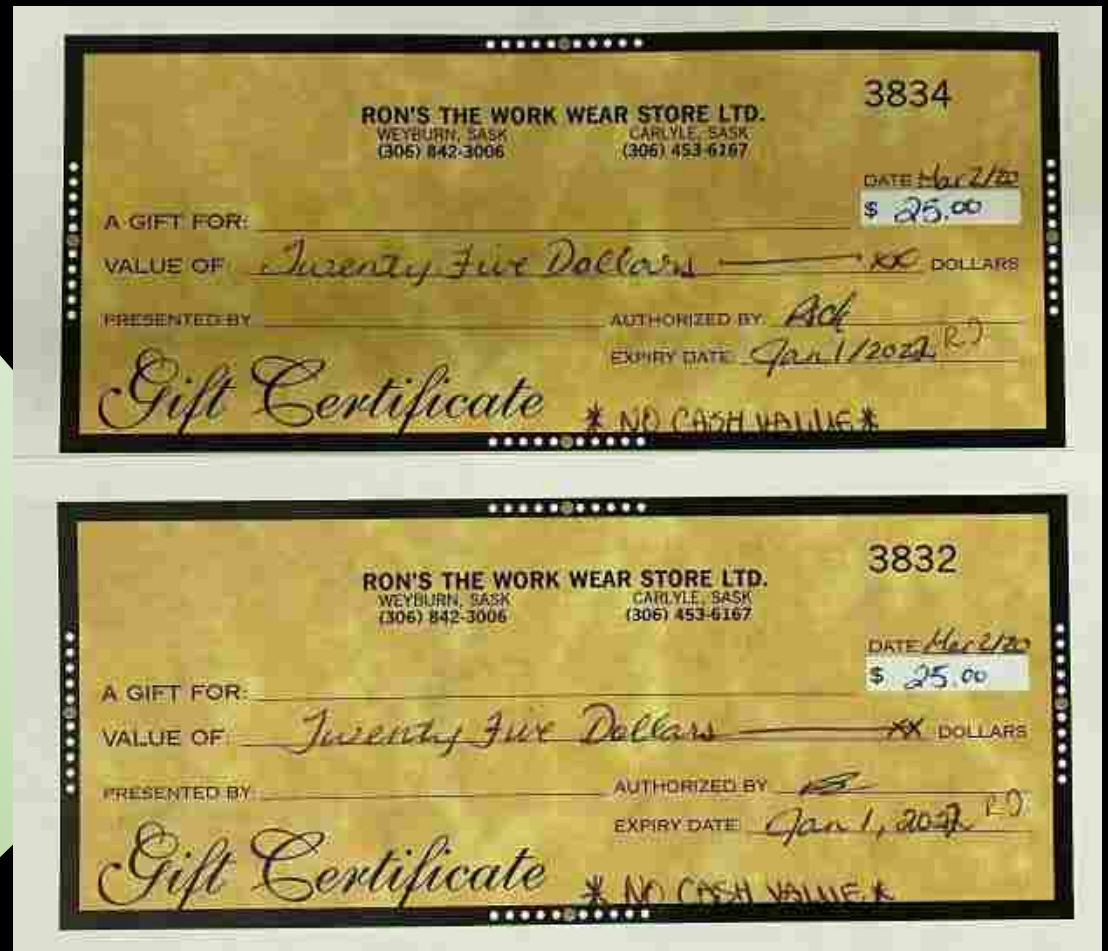 3834
RON'S THE WORK WEAR STORE LTD.
WEYBURN, SASK CARLYLE, SASK
(306) 842-3006 (306) 453-6167
DATE Mar 2/20
$ 25.00
A GIFT FOR:
VALUE OF Twenty Five Dollars xx DOLLARS
PRESENTED BY
AUTHORIZED BY
EXPIRY DATE Jan 1/2022 R.J.
Gift Certificate * NO CASH VALUE *
3832
RON'S THE WORK WEAR STORE LTD.
WEYBURN, SASK CARLYLE, SASK
(306) 842-3006 (306) 453-6167
DATE Mar 2/20
$ 25.00
A GIFT FOR:
VALUE OF: Twenty Five Dollars XX DOLLARS
PRESENTED BY:
AUTHORIZED BY
EXPIRY DATE Jan 1, 2022
Gift Certificate * NO CASH VALUE *